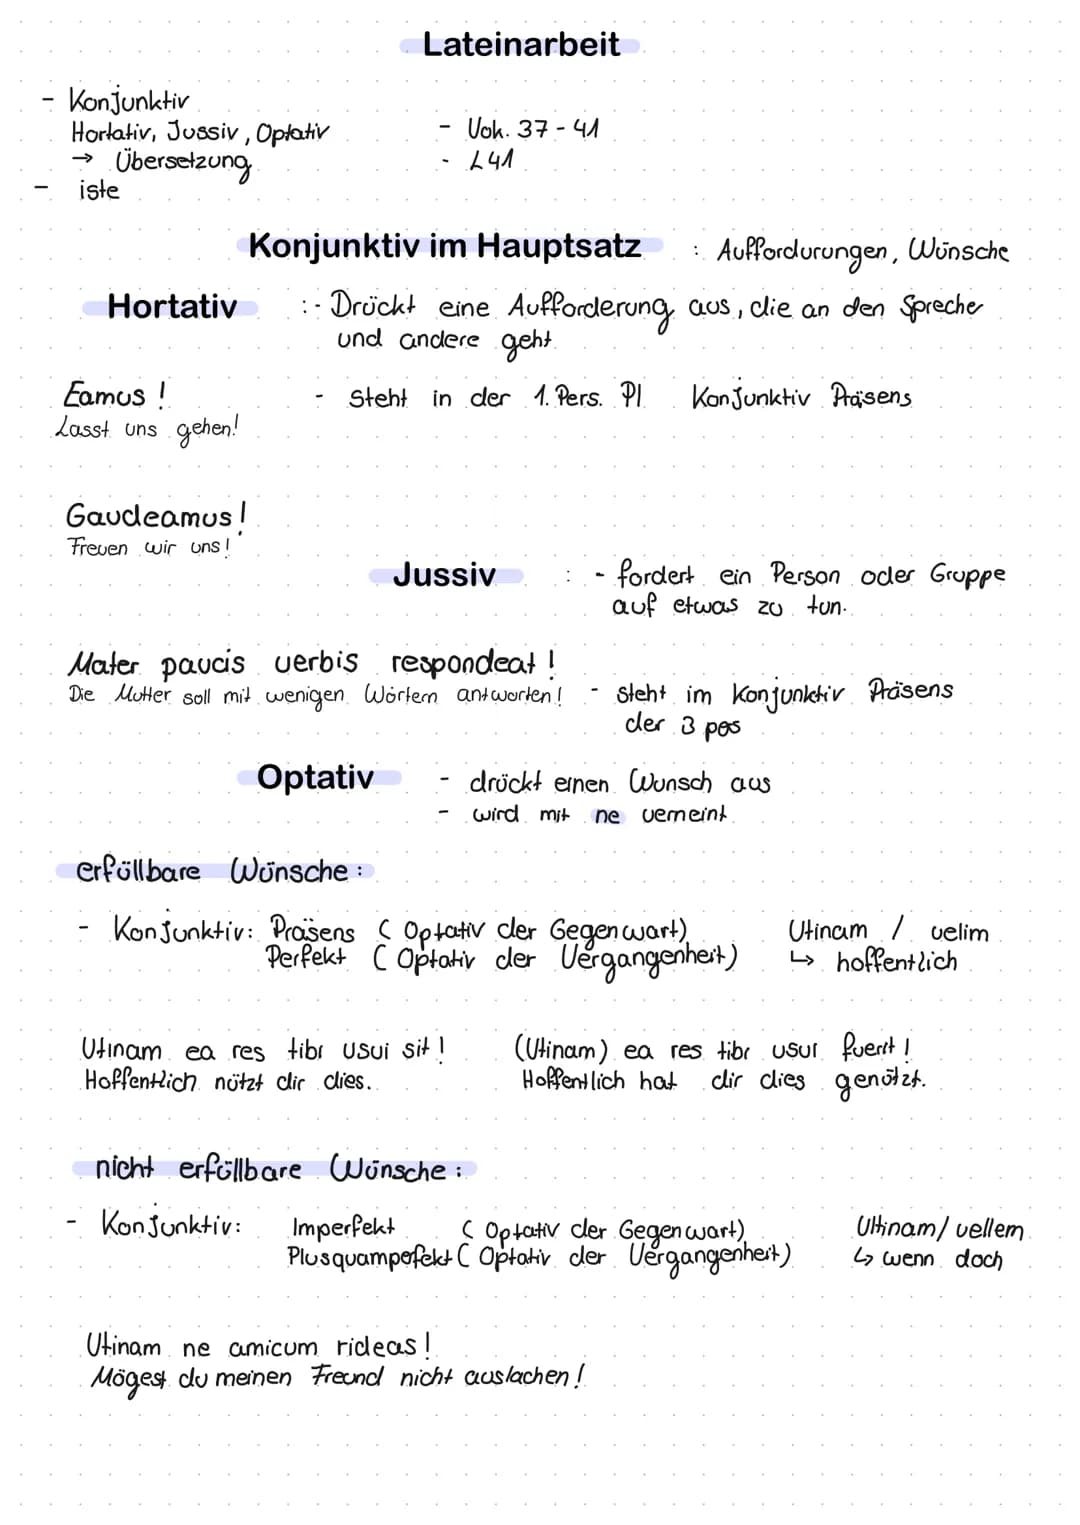 Lateinarbeit
- Konjunktiv
Hortativ, Jussiv, Optativ
→ Übersetzung
- iste
- Vok. 37 - 41
- L41
Konjunktiv im Hauptsatz : Auffordurungen, Wünsche
Hortativ :- Drückt eine Aufforderung aus, die an den Sprecher
und andere geht
Eamus ! - Steht in der 1. Pers. Pl Konjunktiv Präsens
Lasst uns gehen!
Gaudeamus!
Freuen wir uns!
Jussiv : - fordert ein Person oder Gruppe
auf etwas zu tun.
Mater paucis verbis respondeat !
Die Mutter soll mit wenigen Wörtern antworten! - steht im Konjunktiv Präsens
der 3 pos
Optativ - drückt einen Wunsch aus
- wird mit ne verneint
erfüllbare Wünsche :
- Konjunktiv: Präsens ( Optativ der Gegenwart) Utinam / velim
Perfekt ( Optativ der Vergangenheit) ↳ hoffentlich
Utinam ea res tibi usui sit ! (Utinam) ea res tibi usui fuerit !
Hoffentlich nützt dir dies. Hoffentlich hat dir dies genützt.
nicht erfüllbare Wünsche :
- Konjunktiv: Imperfekt ( Optativ der Gegenwart) Ultinam/ vellem
Plusquampefekt ( Optativ der Vergangenheit) ↳ wenn doch
Utinam ne amicum rideas !
Mögest du meinen Freund nicht auslachen !